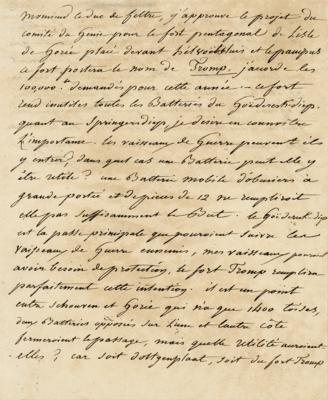 monsieur le duc de feltre, j'approuve le projet du
comité du Genie pour le fort pentagonal de l'isle
de Gorée placé devant helvoetsluis et le pampus
ce fort portera le nom de Tromp. j'accorde les
100,000 demandés pour cette année — ce fort
rend inutiles toutes les Batteries du Goëderechdiep.
quant au Springersdiep, je desire en connoitre
l'importance. les vaisseaux de Guerre peuvent ils
y entrer, dans quel cas une Batterie peut elle y
être utile? une Batterie mobile d'obusiers a
grande portée et de pieces de 12 ne rempliroit
elle pas suffisamment le But. le Goëdereede diep
est la passe principale que pourroient suivre les
vaisseaux de Guerre ennemis, nos vaisseaux pourront
avoir besoin de protection. le fort Tromp remplira
parfaitement cette intention. il est un point
entre schouwen et Gorée qui n'a que 1400 toises,
deux Batteries opposés sur l'une et l'autre côte
fermeroient le passage, mais quelle utilité auroient
-elles? car soit soit du fort Tromp